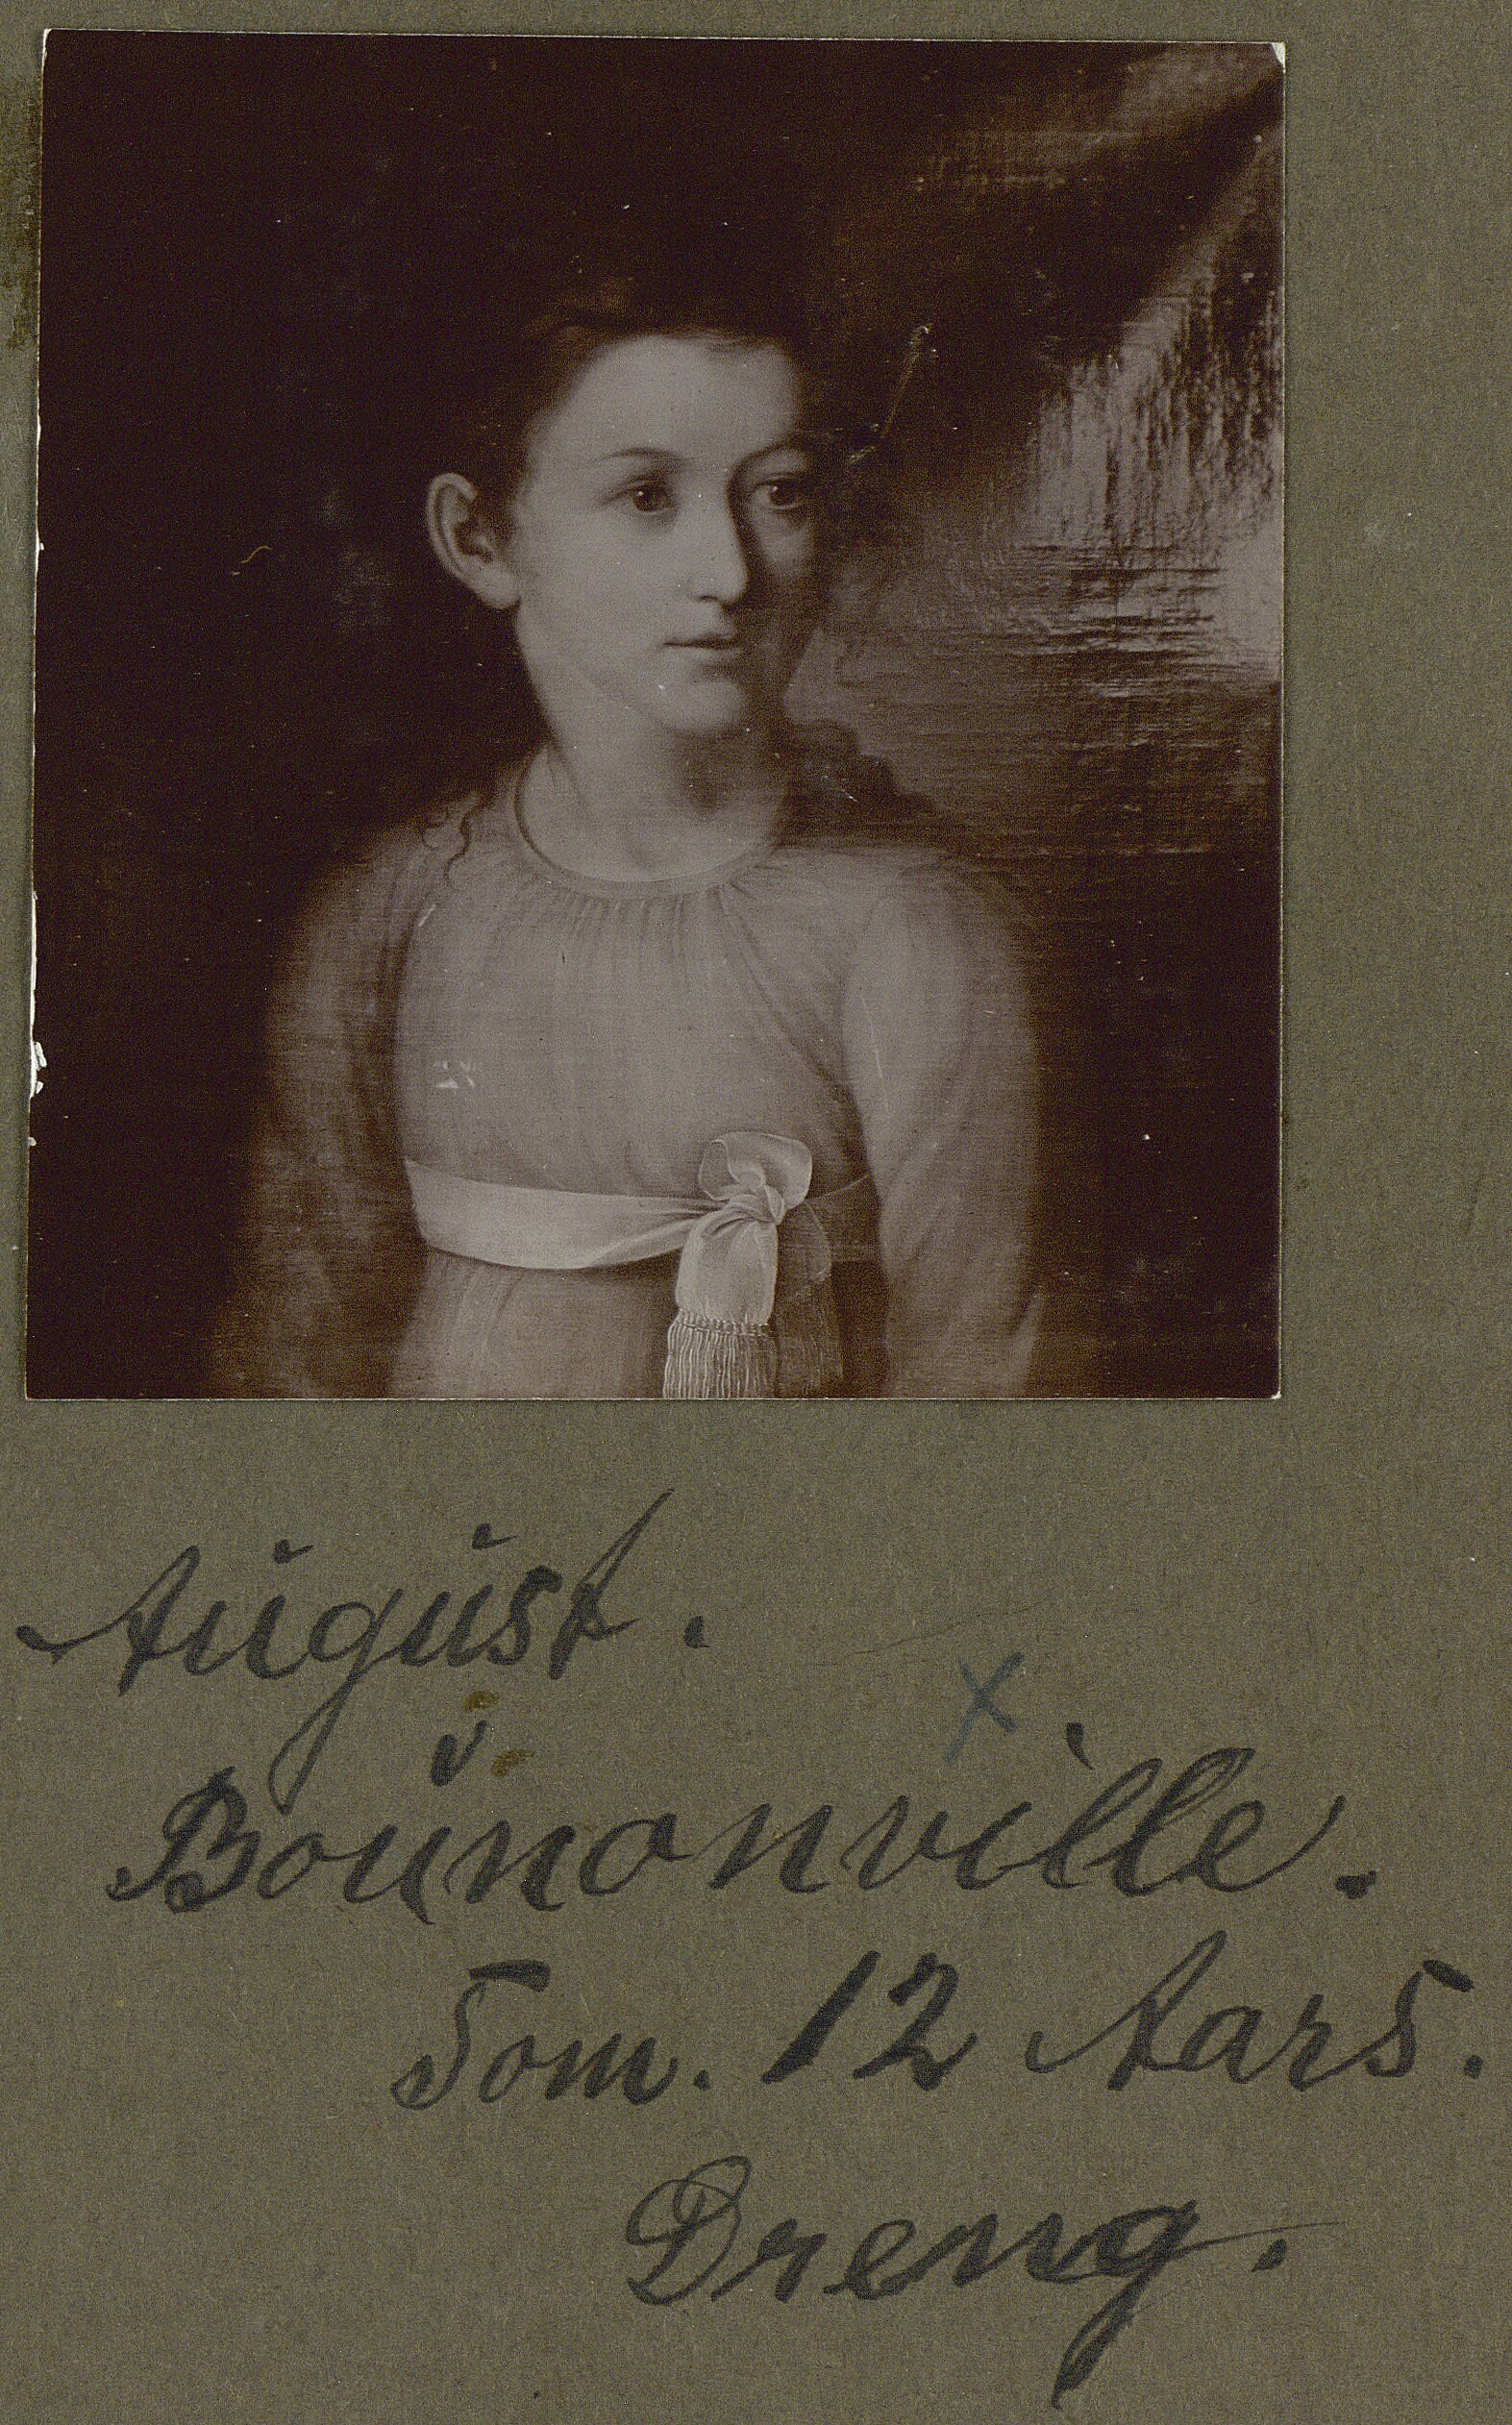 August.
Bounonville.
Som. 12 Aars.
Dreng.